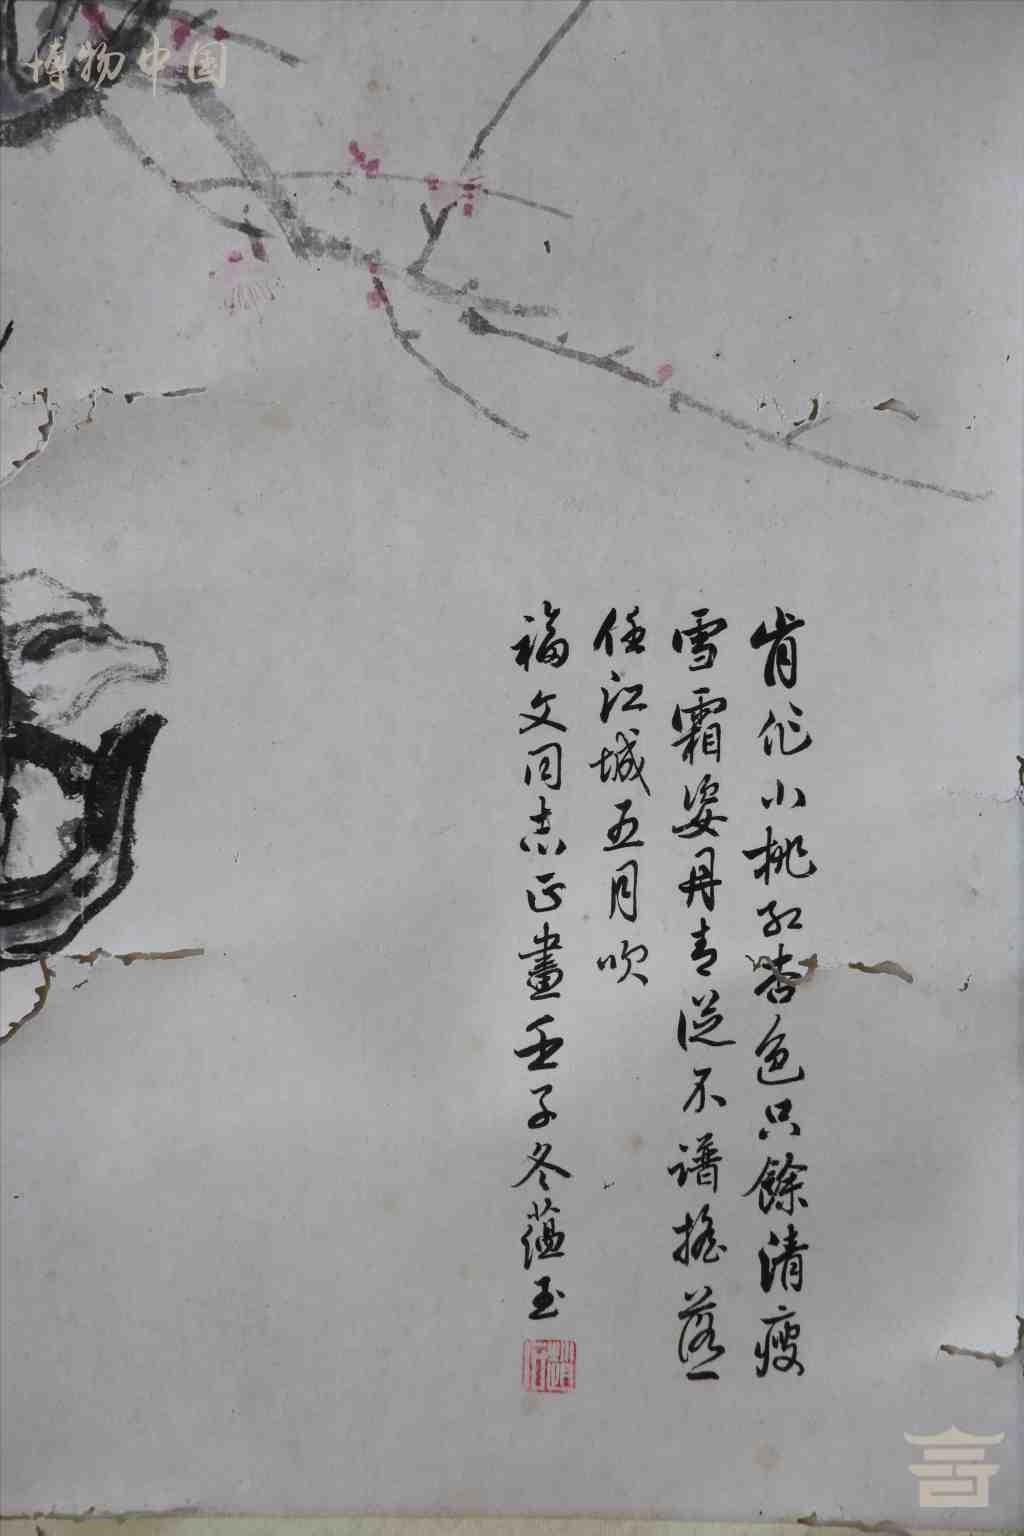 博物中国
肯作小桃红杏色只餘清瘦
雪霜姿丹青從不譜摇落一
任江城五月吹
福文同志正畫壬子冬蕴玉